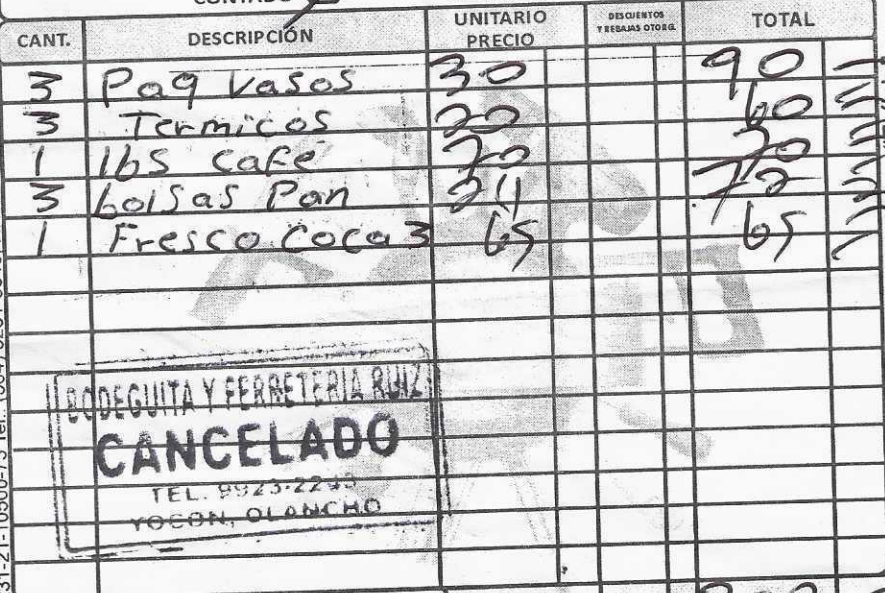 CONTADO
CANT. DESCRIPCIÓN UNITARIO PRECIO DESCUENTOS Y REBAJAS OTORG. TOTAL
3 Paq vasos 30 90
3 Termicos 20 60
1 lbs café 70 70
3 bolsas Pan 24 72
1 Fresco Coca 3 65 65
BODEGUITA Y FERRETERIA RUIZ
CANCELADO
TEL. 9923-2293
YOCON, OLANCHO